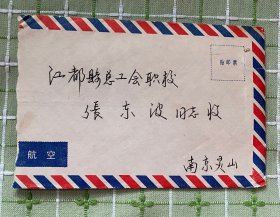 贴邮票
江都縣总工会职校
張东波 同志 收
航空
南京灵山